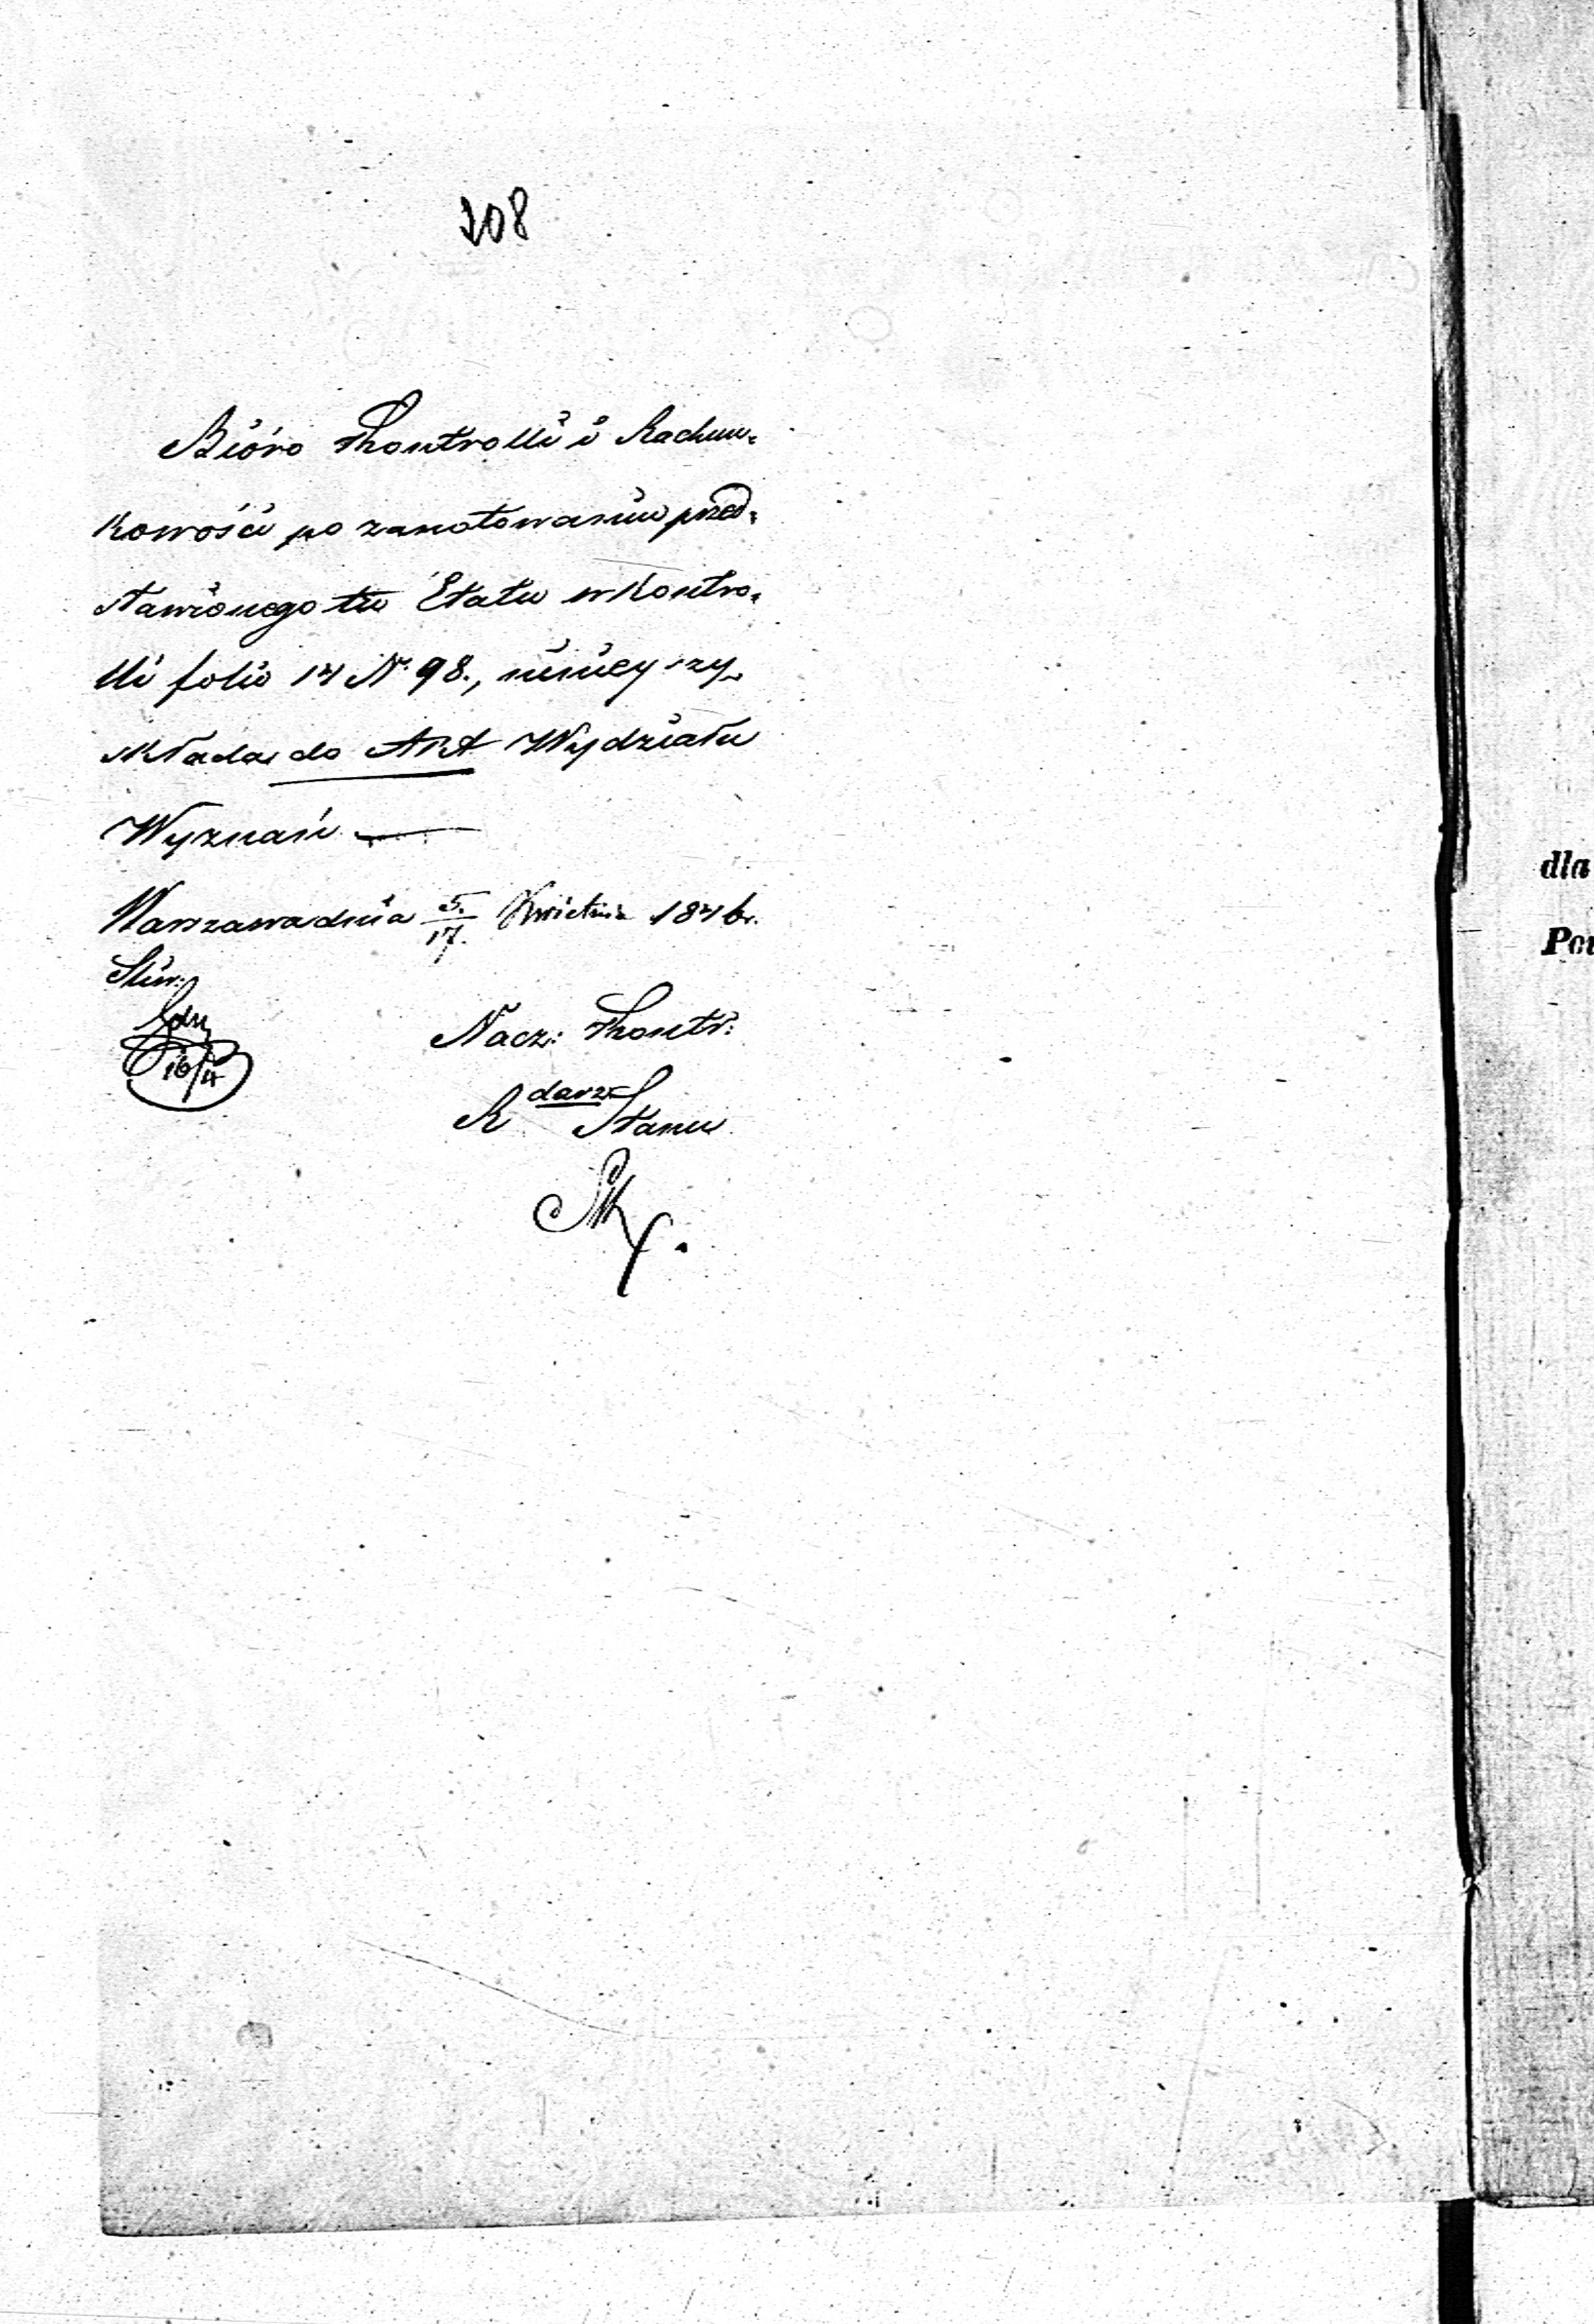 208
Bióro Kontrolli i Rachun=
kowości po zanotowaniu przed=
stawionego tu Etatu w Kontro=
lli folio 14 N. 98., niniejszy
składa do Akt Wydziału
Wyznań
Warszawa dnia 5./17. Kwietnia 1846 r.
Nacz: Kontr:
R darz Stanu
dla